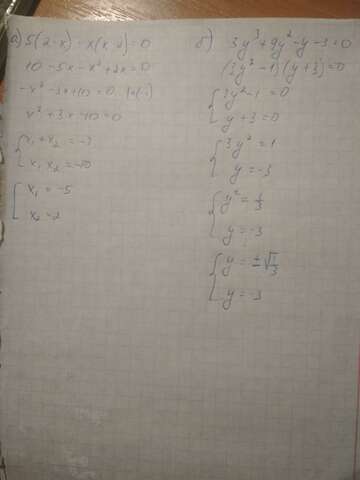 а) 5(2-x) - x(x-2)=0
10-5x-x²+2x=0
-x²-3x+10=0 |·(-1)
x²+3x-10=0
{x₁+x₂=-3
x₁x₂=-10
[x₁=-5
x₂=2
б) 3y³+9y²-y-3=0
(3y²-1)(y+3)=0
{3y²-1=0
y+3=0
{3y²=1
y=-3
{y²=1/3
y=-3
{y=±√1/3
y=-3